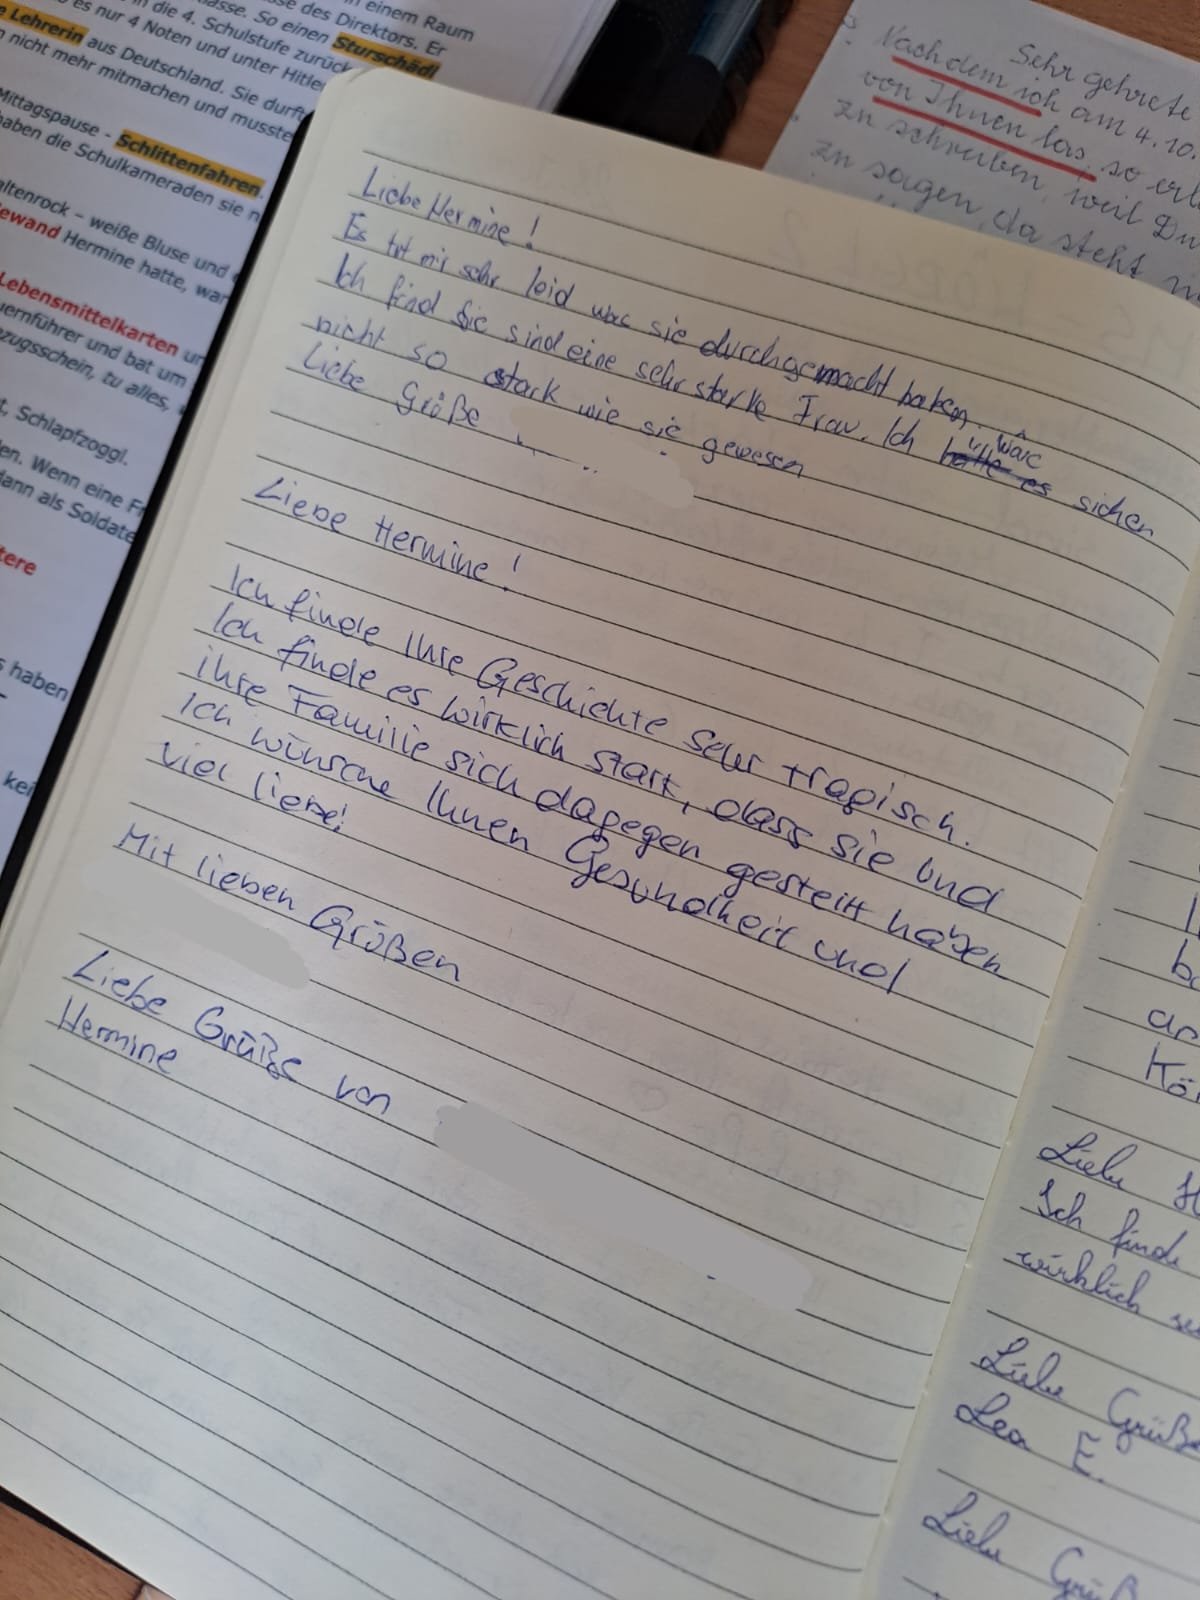 einem Raum
des Direktors. Er
klasse. So einen Sturschädl
in die 4. Schulstufe zurück
es nur 4 Noten und unter Hitler
Lehrerin aus Deutschland. Sie durfte
nicht mehr mitmachen und musste
Mittagspause - Schlittenfahren.
haben die Schulkameraden sie n
altenrock – weiße Bluse und
Gewand Hermine hatte, war
Lebensmittelkarten un
uernführer und bat um
zugsschein, tu alles,
t, Schlapfzoggl.
en. Wenn eine F
dann als Soldate
tere
s haben
kei
Sehr geehrete
Nachdem ich am 4. 10.
von Ihnen las, so erl
zu schreiben, weil Du
zu sagen, da steht
Liebe Hermine!
Es tut mir sehr leid was sie durchgemacht haben.
Ich find Sie sind eine sehr starke Frau. Ich hätte es wäre sicher
nicht so stark wie sie gewesen
Liebe Grüße
Liebe Hermine!
Ich finde Ihre Geschichte sehr tragisch.
Ich finde es wirklich stark, dass sie und
ihre Familie sich dagegen gestellt haben
Ich wünsche Ihnen Gesundheit und
viel liebe!
Mit lieben Grüßen
Liebe Grüße von
Hermine
Liebe H
Ich finde
wirklich se
Liebe Grüße
Lea E.
Liebe Grüß